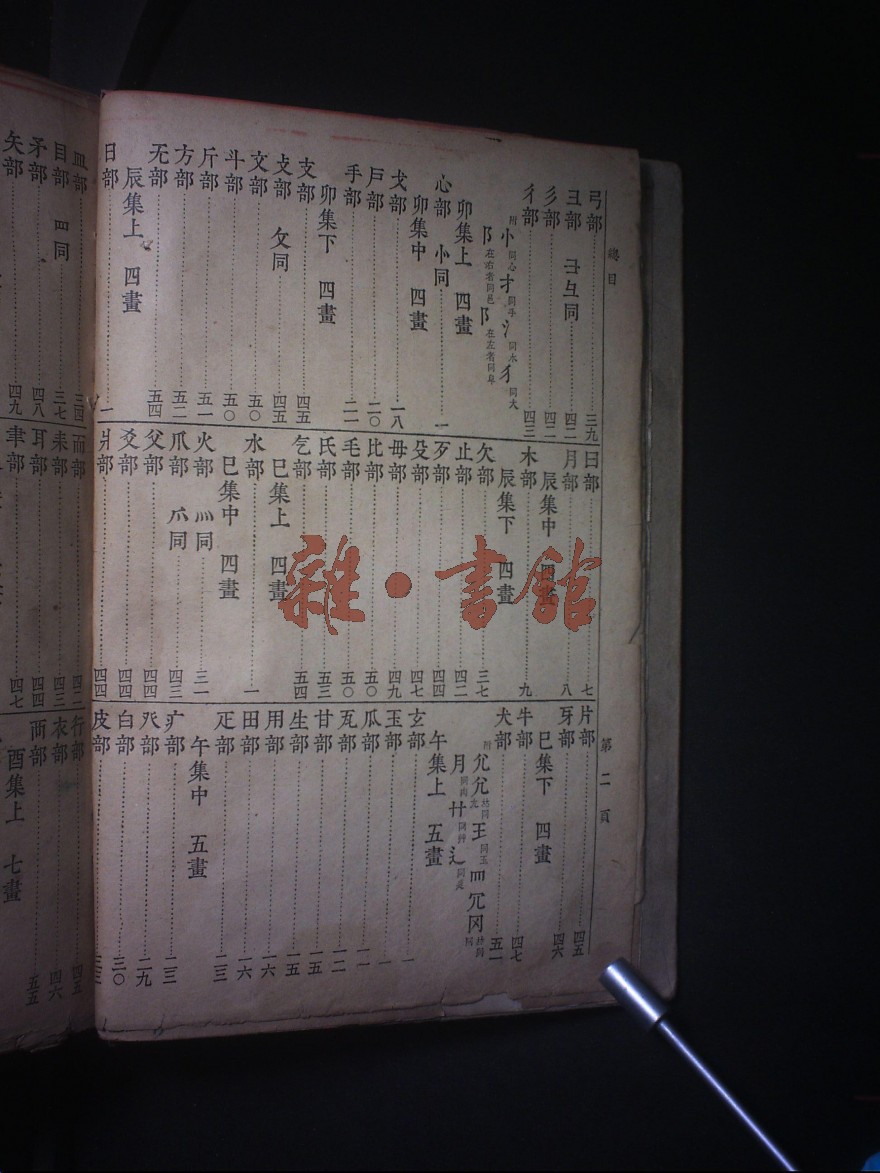 總目
弓部 三九
彐部 彑彐同 四二
彡部 四二
彳部 四三
附 忄同心 扌同手 氵同水 犭同犬
阝在右者同邑 阝在左者同阜
卯集上 四畫
心部 忄同 一
卯集中 四畫
戈部 一八
戶部 二〇
手部 二一
卯集下 四畫
支部 四五
攴部 攵同 四五
文部 五〇
斗部 五〇
斤部 五一
方部 五二
无部 五四
辰集上 四畫
日部 一
曰部 七
月部 八
辰集中 四畫
木部 九
辰集下 四畫
欠部 三七
止部 四二
歹部 四四
殳部 四七
毋部 四九
比部 五〇
毛部 五〇
氏部 五三
气部 五四
巳集上 四畫
水部 一
巳集中 四畫
火部 灬同 三一
爪部 爫同 四三
父部 四四
爻部 四四
爿部 四四
第二頁
片部 四五
牙部 四六
巳集下 四畫
牛部 四七
犬部 五一
午集上 五畫
玄部 一
玉部 一
瓜部 一一
瓦部 一二
甘部 一五
生部 一五
用部 一六
田部 一六
疋部 二三
午集中 五畫
疒部 二三
癶部 二九
白部 三〇
皮部 三三
皿部 三四
目部 罒同 三七
矛部 四八
矢部 四九
而部 四二
耒部 四三
耳部 四四
聿部 四七
行部 四五
衣部 四六
襾部 五五
酉集上 七畫
雜·書館